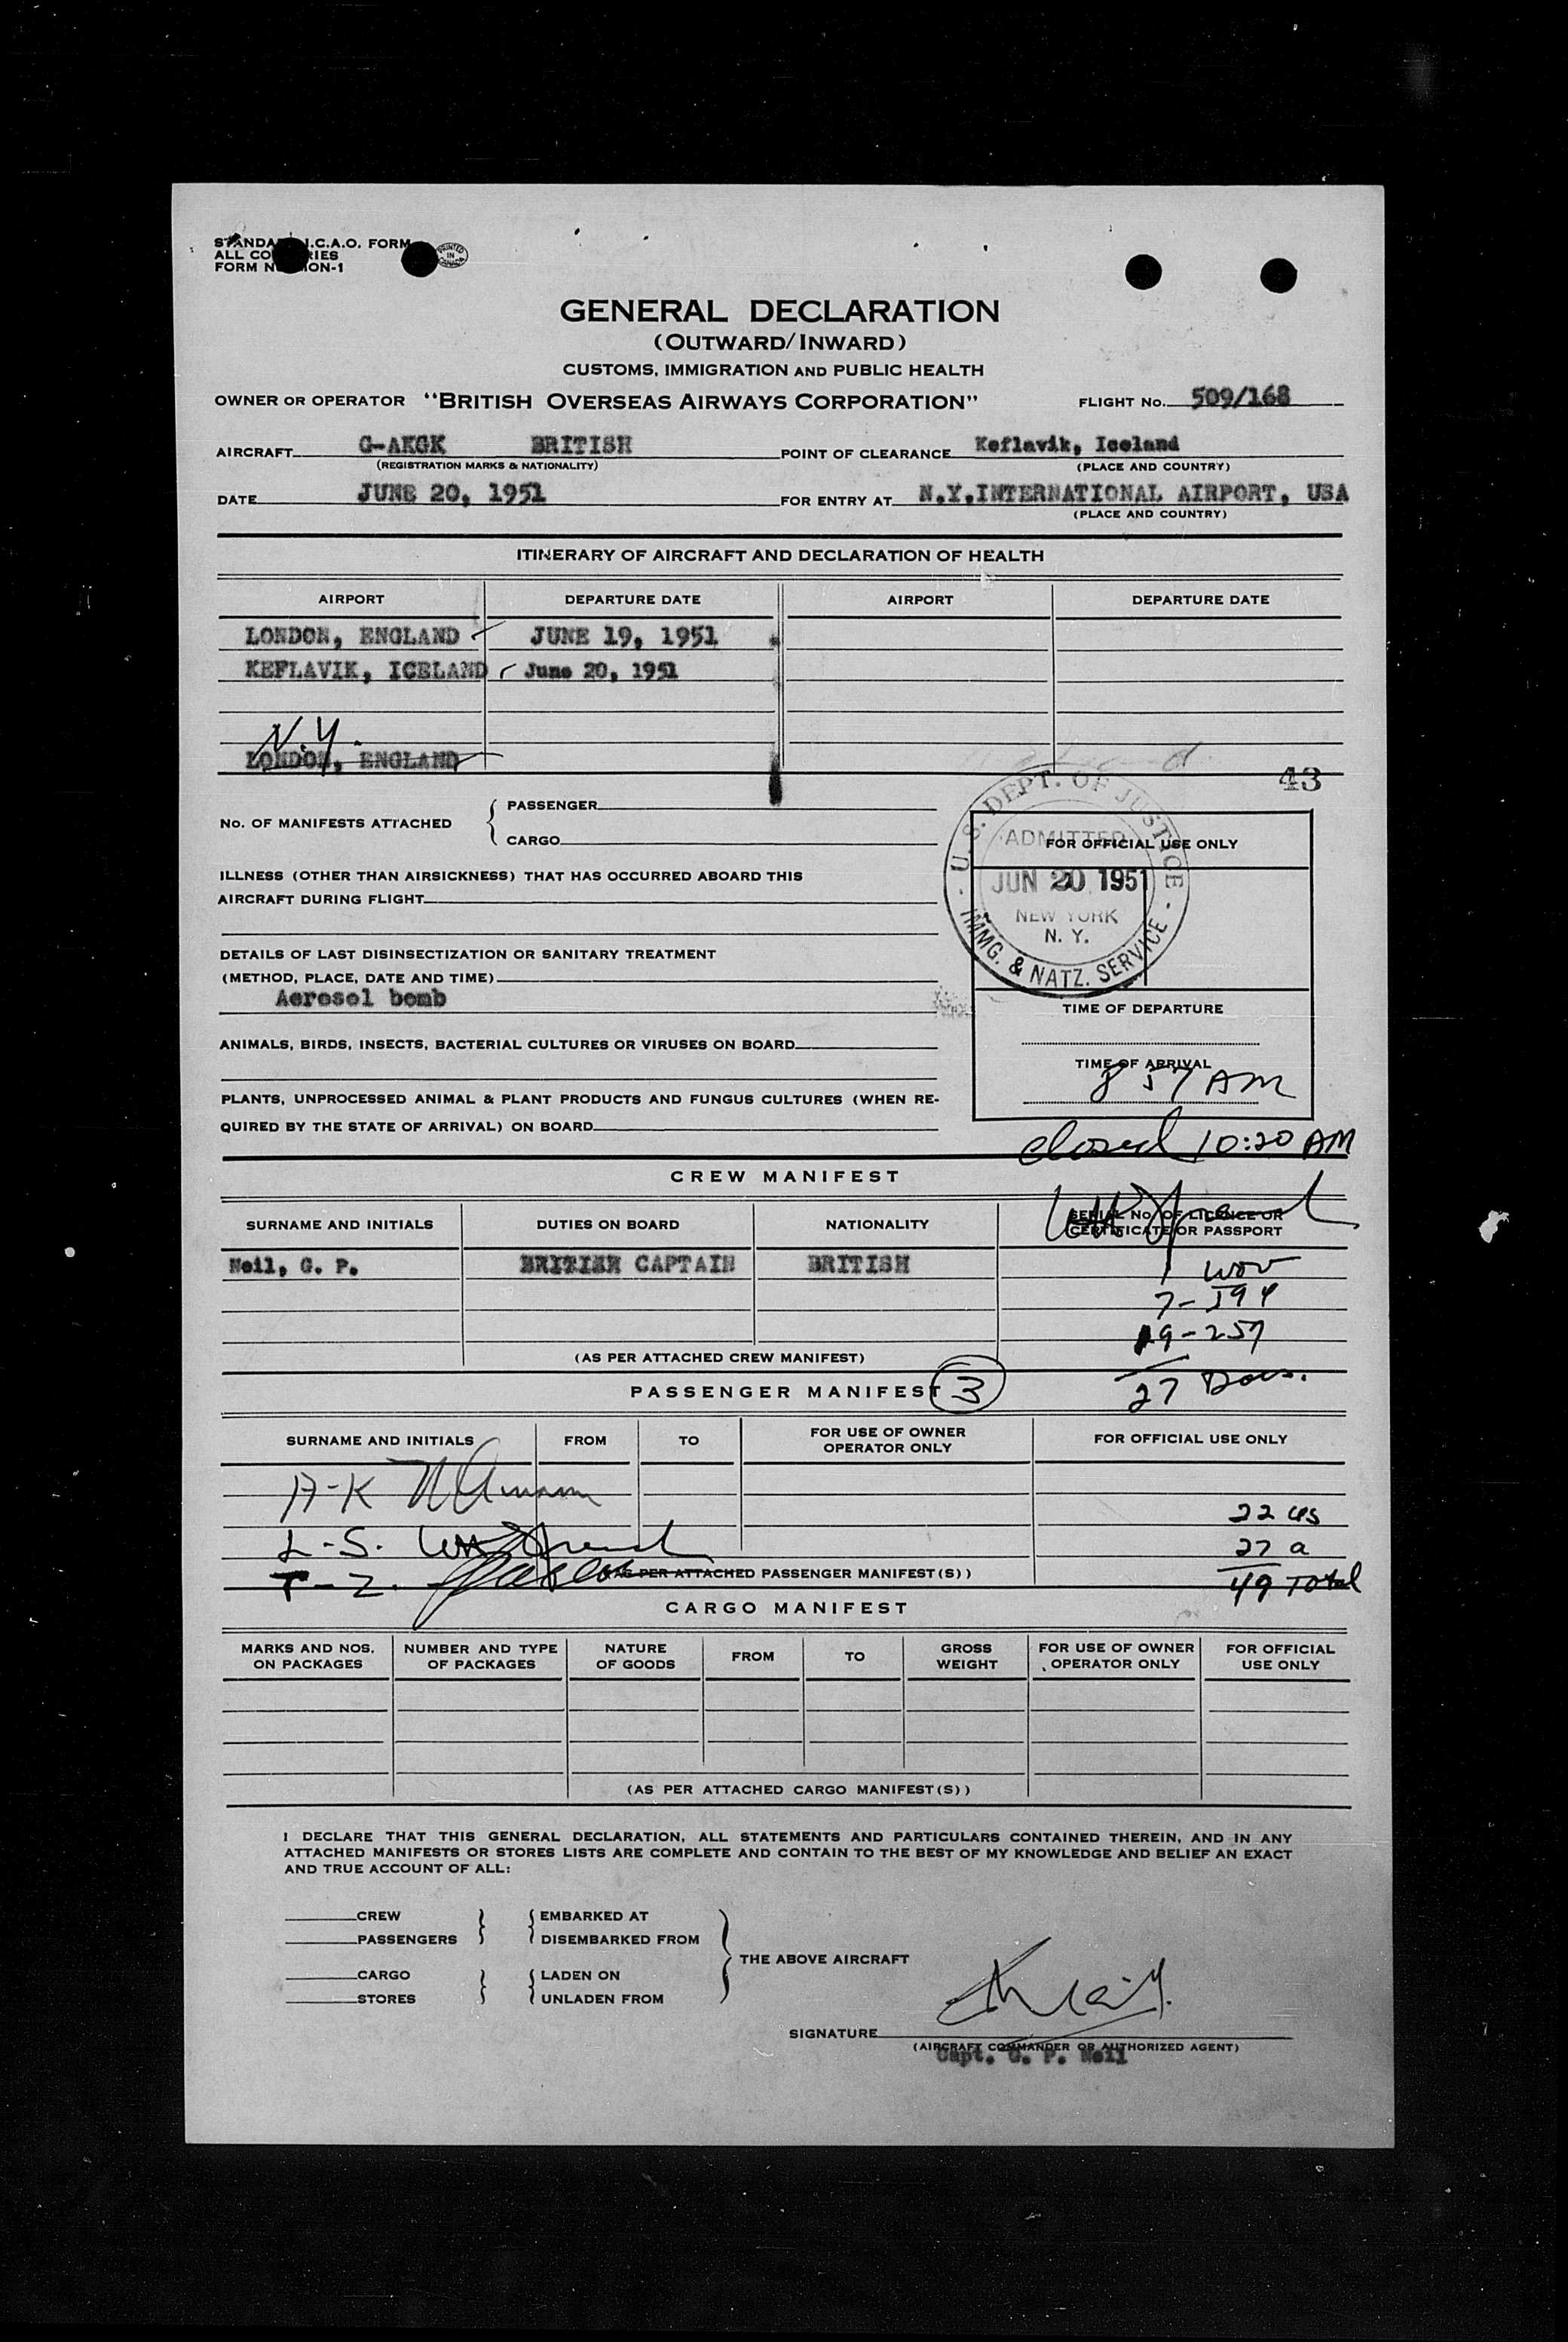 STANDARD I.C.A.O. FORM
ALL COUNTRIES
FORM N ION-1
PRINTED IN CANADA
GENERAL DECLARATION
(OUTWARD/INWARD)
CUSTOMS, IMMIGRATION AND PUBLIC HEALTH
OWNER OR OPERATOR "BRITISH OVERSEAS AIRWAYS CORPORATION" FLIGHT No. 509/168
AIRCRAFT G-AKGK BRITISH POINT OF CLEARANCE Keflavik, Iceland
(REGISTRATION MARKS & NATIONALITY) (PLACE AND COUNTRY)
DATE JUNE 20, 1951 FOR ENTRY AT N.Y.INTERNATIONAL AIRPORT, USA
(PLACE AND COUNTRY)
ITINERARY OF AIRCRAFT AND DECLARATION OF HEALTH
AIRPORT DEPARTURE DATE AIRPORT DEPARTURE DATE
LONDON, ENGLAND JUNE 19, 1951
KEFLAVIK, ICELAND June 20, 1951
N.Y.
LONDON, ENGLAND
43
No. OF MANIFESTS ATTACHED { PASSENGER
CARGO
FOR OFFICIAL USE ONLY
U.S. DEPT. OF JUSTICE
ADMITTED
JUN 20 1951
NEW YORK
N. Y.
IMMG. & NATZ. SERVICE
ILLNESS (OTHER THAN AIRSICKNESS) THAT HAS OCCURRED ABOARD THIS
AIRCRAFT DURING FLIGHT
DETAILS OF LAST DISINSECTIZATION OR SANITARY TREATMENT
(METHOD, PLACE, DATE AND TIME)
Aerosol bomb
TIME OF DEPARTURE
ANIMALS, BIRDS, INSECTS, BACTERIAL CULTURES OR VIRUSES ON BOARD
TIME OF ARRIVAL
8 57 AM
PLANTS, UNPROCESSED ANIMAL & PLANT PRODUCTS AND FUNGUS CULTURES (WHEN RE-
QUIRED BY THE STATE OF ARRIVAL) ON BOARD
closed 10:20 AM
CREW MANIFEST
SURNAME AND INITIALS DUTIES ON BOARD NATIONALITY SERIAL No. OF LICENCE OR
CERTIFICATE OR PASSPORT
Neil, G. P. CAPTAIN BRITISH
7-594
19-257
27
(AS PER ATTACHED CREW MANIFEST)
PASSENGER MANIFEST 3
SURNAME AND INITIALS FROM TO FOR USE OF OWNER
OPERATOR ONLY FOR OFFICIAL USE ONLY
A-K
22 US
L-S.
27 a
T-Z. (AS PER ATTACHED PASSENGER MANIFEST(S)) 49 Total
CARGO MANIFEST
MARKS AND NOS.
ON PACKAGES NUMBER AND TYPE
OF PACKAGES NATURE
OF GOODS FROM TO GROSS
WEIGHT FOR USE OF OWNER
OPERATOR ONLY FOR OFFICIAL
USE ONLY
(AS PER ATTACHED CARGO MANIFEST(S))
I DECLARE THAT THIS GENERAL DECLARATION, ALL STATEMENTS AND PARTICULARS CONTAINED THEREIN, AND IN ANY
ATTACHED MANIFESTS OR STORES LISTS ARE COMPLETE AND CONTAIN TO THE BEST OF MY KNOWLEDGE AND BELIEF AN EXACT
AND TRUE ACCOUNT OF ALL:
CREW } { EMBARKED AT
PASSENGERS } { DISEMBARKED FROM
} THE ABOVE AIRCRAFT
CARGO } { LADEN ON
STORES } { UNLADEN FROM
SIGNATURE
(AIRCRAFT COMMANDER OR AUTHORIZED AGENT)
Capt. G. P. Neil